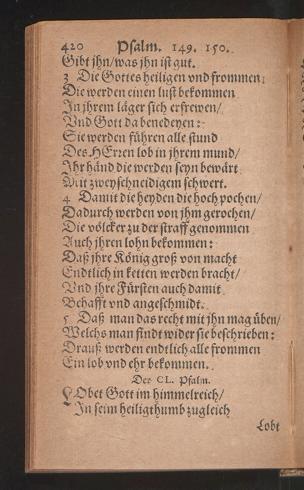 420 Psalm. 149. 150.
Gibt jhn/was jhn ist gut.
3 Die Gottes heiligen vnd frommen:
Die werden einen lust bekommen
In jhrem läger sich erfrewen/
Vnd Gott da benedeyen:
Sie werden führen alle stund
Des HErren lob in jhrem mund/
Ihr händ die werden seyn bewärt
Mit zweyschneidigem schwert.
4 Damit die heyden die hoch pochen/
Dadurch werden von jhm gerochen/
Die völcker zu der straff genommen
Auch jhren lohn bekommen:
Daß jhre König groß von macht
Endtlich in ketten werden bracht/
Vnd jhre Fürsten auch damit
Behafft vnd angeschmidt.
5 Daß man das recht mit jhn mag üben/
Welchs man findt wider sie beschrieben:
Drauß werden endtlich alle frommen
Ein lob vnd ehr bekommen.
Der CL. Psalm.
LObet Gott im himmelreich/
In seim heiligthumb zugleich
Lobt